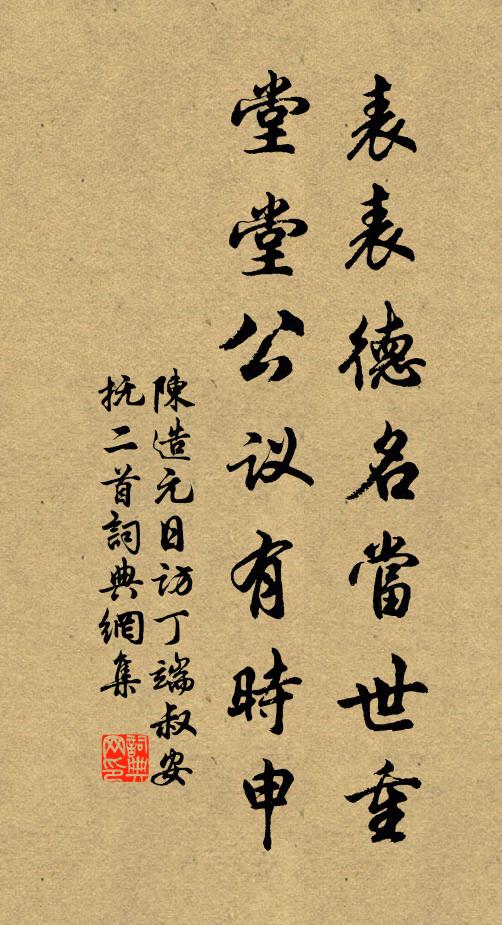 表表德名當世重
堂堂公议有時申
陳造元日访丁端叔安
抚二首詞典網集
詞典网印